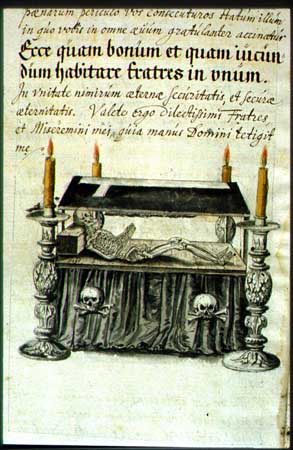 pænarum periculo vos consecuturos statum illum
in quo vobis in omne æuum gratulanter accinatur
Ecce quam bonum et quam iucun
dum habitare fratres in vnum.
In vnitate nimirum æternæ securitatis, et securæ
æternitatis. Valete ergo dilectissimi Fratres,
et Miseremini mei, quia manus Domini tetigit
me.